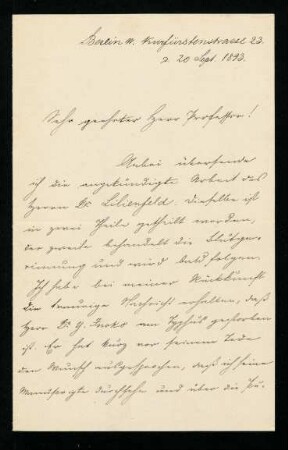 Berlin W. Kurfürstenstrasse 23.
d. 20 Sept. 1893.
Sehr geehrter Herr Professor!
Anbei übersende
ich die angekündigte Arbeit des
Herrn Dr. Lilienfeld. Dieselbe ist
in zwei Theile getheilt worden,
der zweite behandelt die Blutge-
rinnung und wird bald folgen.
Ich habe bei meiner Rückkunft
die traurige Nachricht erhalten, daß
Herr Dr. Y. Inoko am Typhus gestorben
ist. Er hat kurz vor seinem Tode
den Wunsch ausgesprochen, daß ich seine
Manuscripte durchsehe und über die Pu-